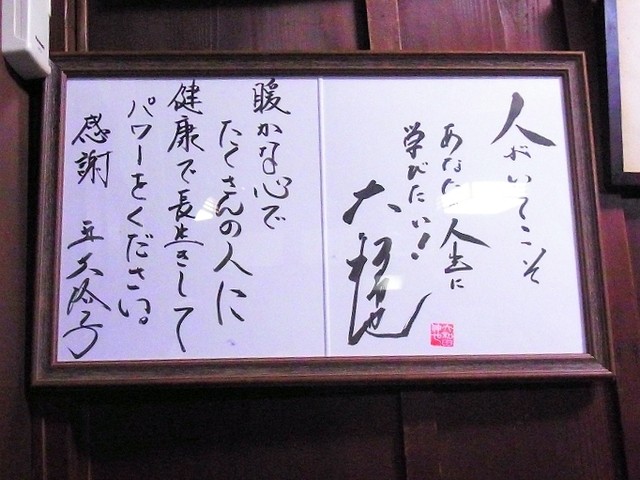 人がいてこそ
あなたの人生に
学びたい！
暖かな心で
たくさんの人に
健康で長生きして
パワーをください。
感謝